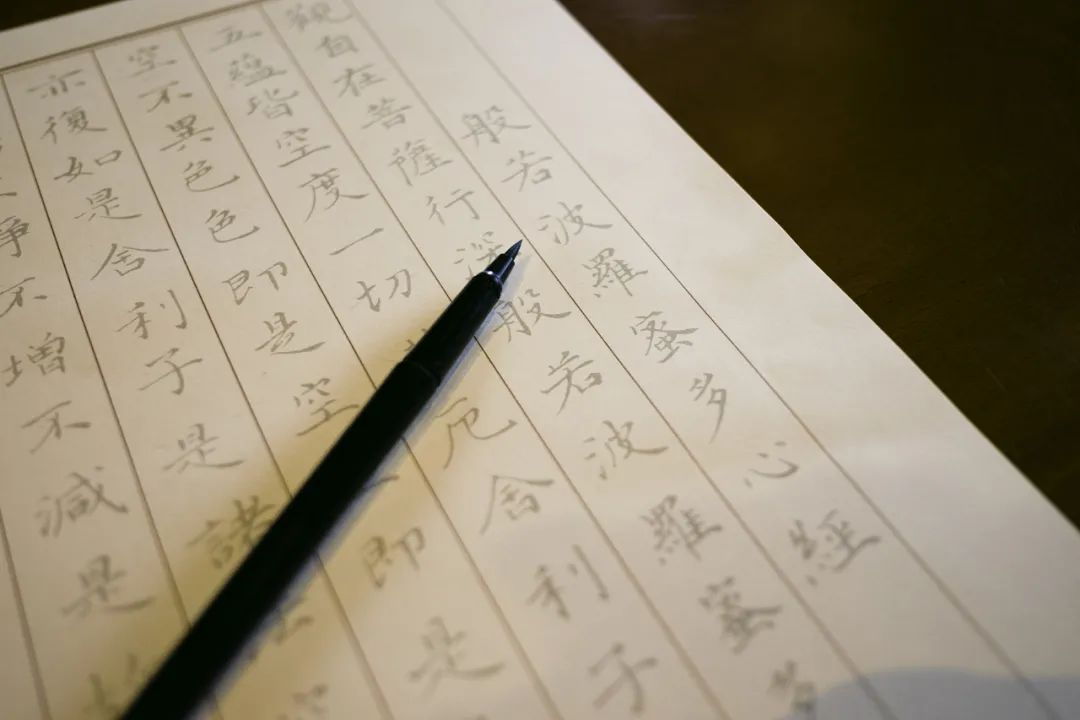 般若波羅蜜多心經
觀自在菩薩行深般若波羅蜜多
五蘊皆空度一切厄舍利子
空不異色色即是空即是
亦復如是舍利子是諸空
淨不增不減是